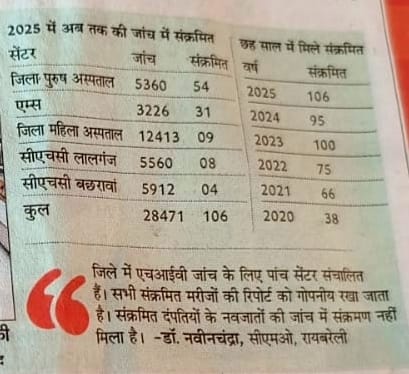 2025 में अब तक की जांच में संक्रमित
सेंटर जांच संक्रमित
जिला पुरुष अस्पताल 5360 54
एम्स 3226 31
जिला महिला अस्पताल 12413 09
सीएचसी लालगंज 5560 08
सीएचसी बछरावां 5912 04
कुल 28471 106
छह साल में मिले संक्रमित
वर्ष संक्रमित
2025 106
2024 95
2023 100
2022 75
2021 66
2020 38
जिले में एचआईवी जांच के लिए पांच सेंटर संचालित
हैं। सभी संक्रमित मरीजों की रिपोर्ट को गोपनीय रखा जाता
है। संक्रमित दंपतियों के नवजातों की जांच में संक्रमण नहीं
मिला है। -डॉ. नवीनचंद्रा, सीएमओ, रायबरेली